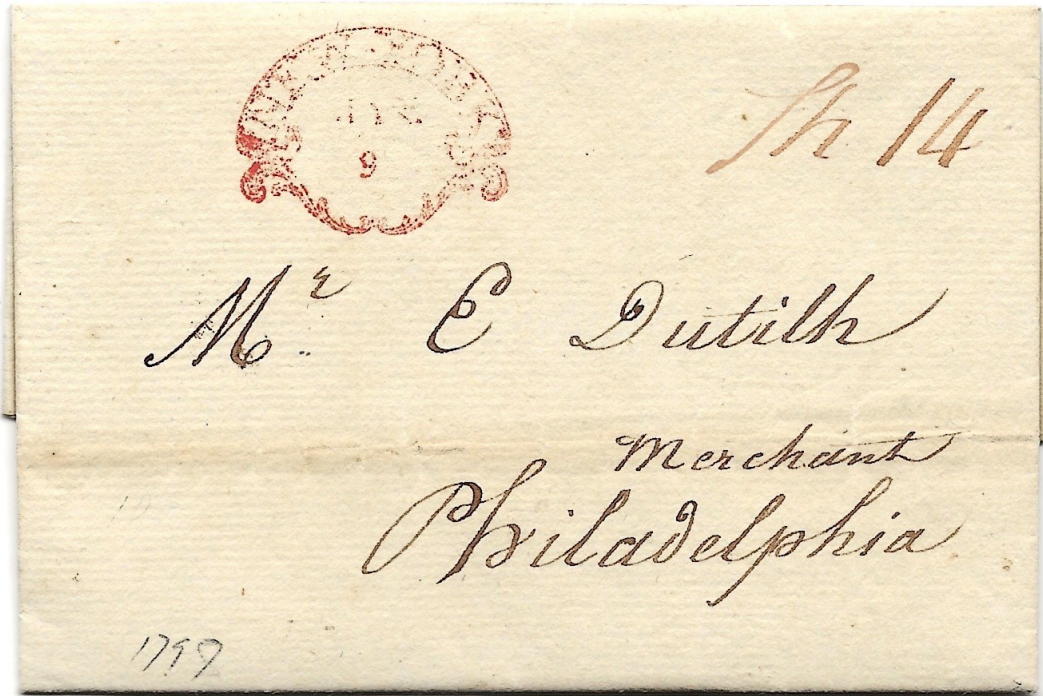 NEW-YORK
9
Sh 14
Mr. E Dutilh
Merchant
Philadelphia